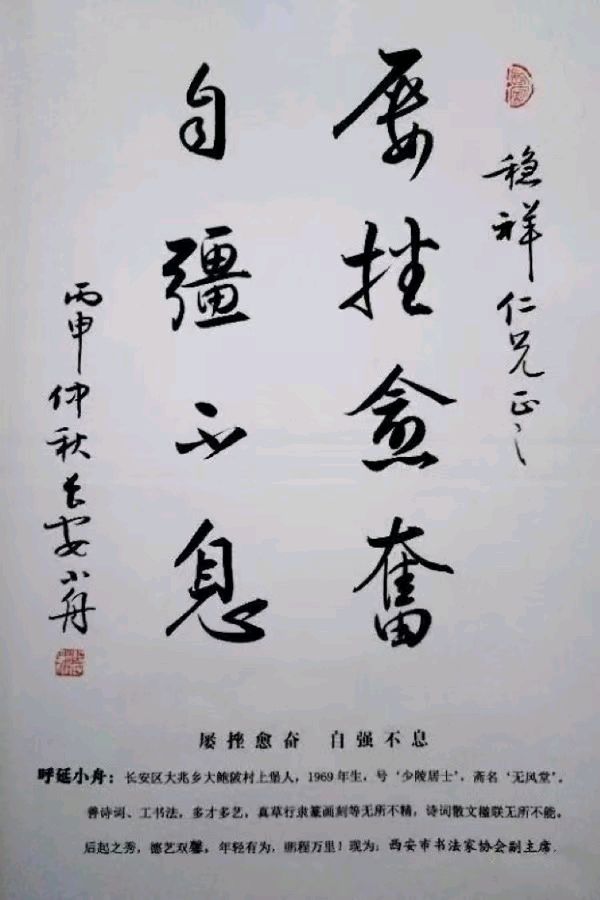 稳祥仁兄正之
屡挫愈奮
自彊不息
丙申仲秋长安小舟
屡挫愈奋 自强不息
呼延小舟：长安区大兆乡大鲍陂村上堡人，1969年生，号‘少陵居士’，斋名‘无风堂’。
善诗词、工书法，多才多艺，真草行隶篆画刻等无所不精，诗词散文楹联无所不能。
后起之秀，德艺双馨，年轻有为，鹏程万里！现为：西安市书法家协会副主席.